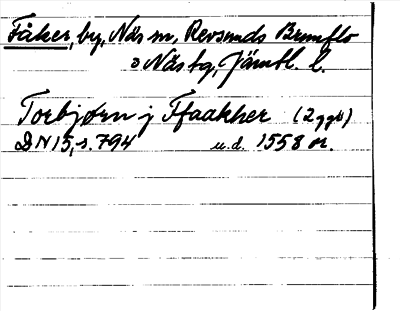 Fåker, by, Näs sn, Revsunds Brunflo
o Näs tg, Jämtl. l.
Torbjørn j Ffaakher (2 ggr)
DN 15, s. 794 u.d. 1558 or.